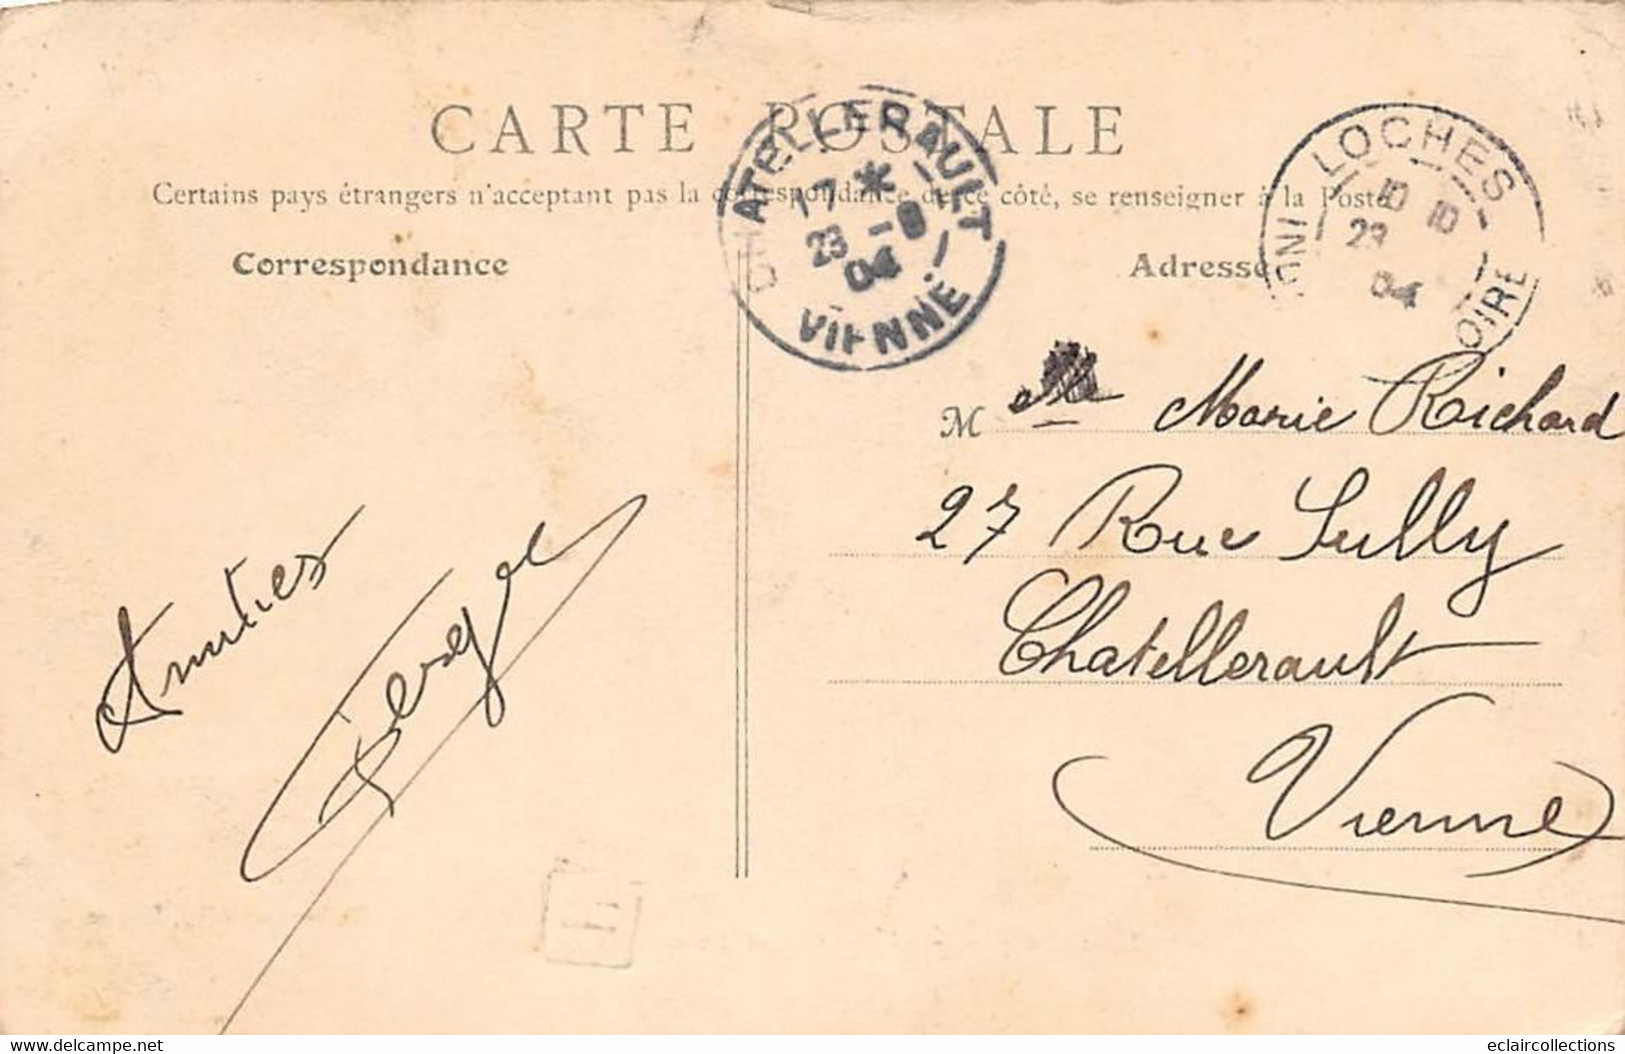 CARTE POSTALE
Certains pays étrangers n'acceptant pas la correspondance de ce côté, se renseigner à la Poste
Correspondance
Adresse
CHATELLERAULT
17 *
23 -8
04
VIENNE
LOCHES
10 10
23
04
INDRE
LOIRE
Melle Marie Richard
27 Rue Sully
Chatellerault
Vienne
Amitiés
delcampe.net
eclaircollections